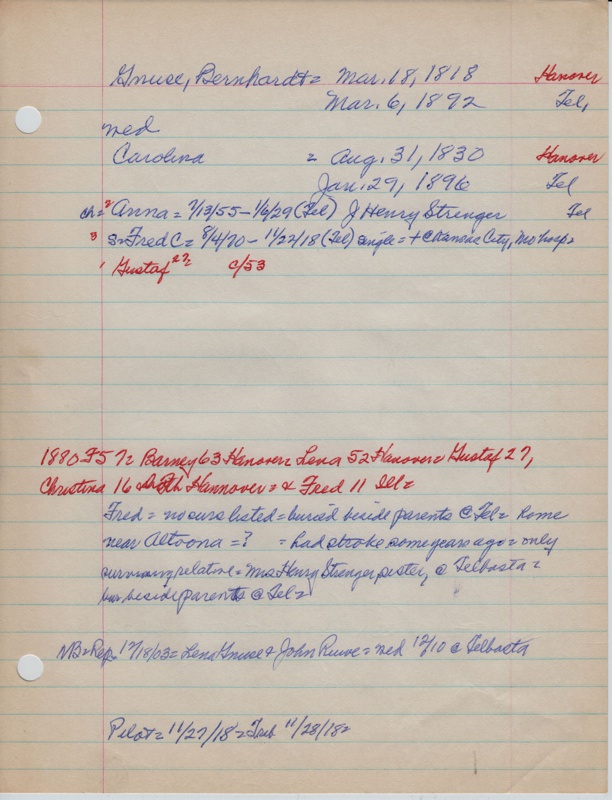 Gnuse, Bernhardt = Mar. 18, 1818 Hanover
Mar. 6, 1892 Tel,
wed
Carolina = Aug. 31, 1830 Hanover
Jan. 29, 1896 Tel
ch = 2 Anna = 7/13/55 - 1/6/29 (Tel) J Henry Strenger Tel
3 s = Fred C = 8/4/70 - 11/22/18 (Tel) single = + @ Kansas City, Mo hosp =
1 Gustaf 27 c/53
1880 F5 7 = Barney 63 Hanover = Lena 52 Hanover = Gustaf 27,
Christina 16 Hannover = & Fred 11 Ill =
Fred = no surs listed = buried beside parents @ Tel = home
near Altoona = ? = had stroke some years ago = only
surviving relative = Mrs Henry Strenger, sister, @ Telbasta =
bur beside parents @ Tel =
NB = Rep 12/18/03 = Lena Gnuse & John = wed 12/10 @ Telbasta
Pilot = 11/27/18 = Trib 11/28/18 =